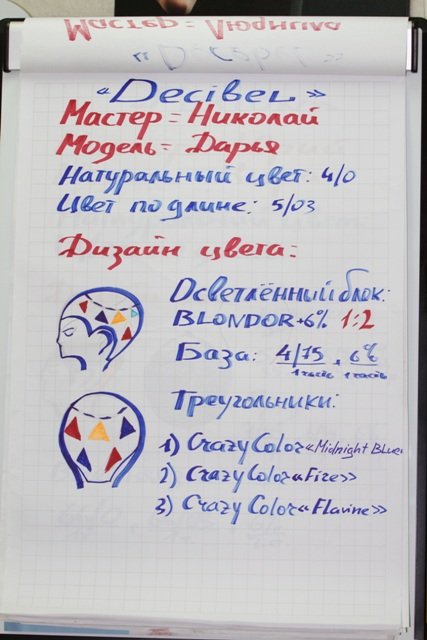 Мастер = Людмила
«Decibel»
«Decibel»
Мастер = Николай
Модель = Дарья
Натуральный цвет: 4/0
Цвет по длине: 5/03
Дизайн цвета:
Осветлённый блок:
BLONDOR + 6% 1:2
База: 4/75 , 6%
1 часть 1 часть
Треугольники:
1) Crazy Color «Midnight Blue»
2) Crazy Color «Fire»
3) Crazy Color «Flavine»